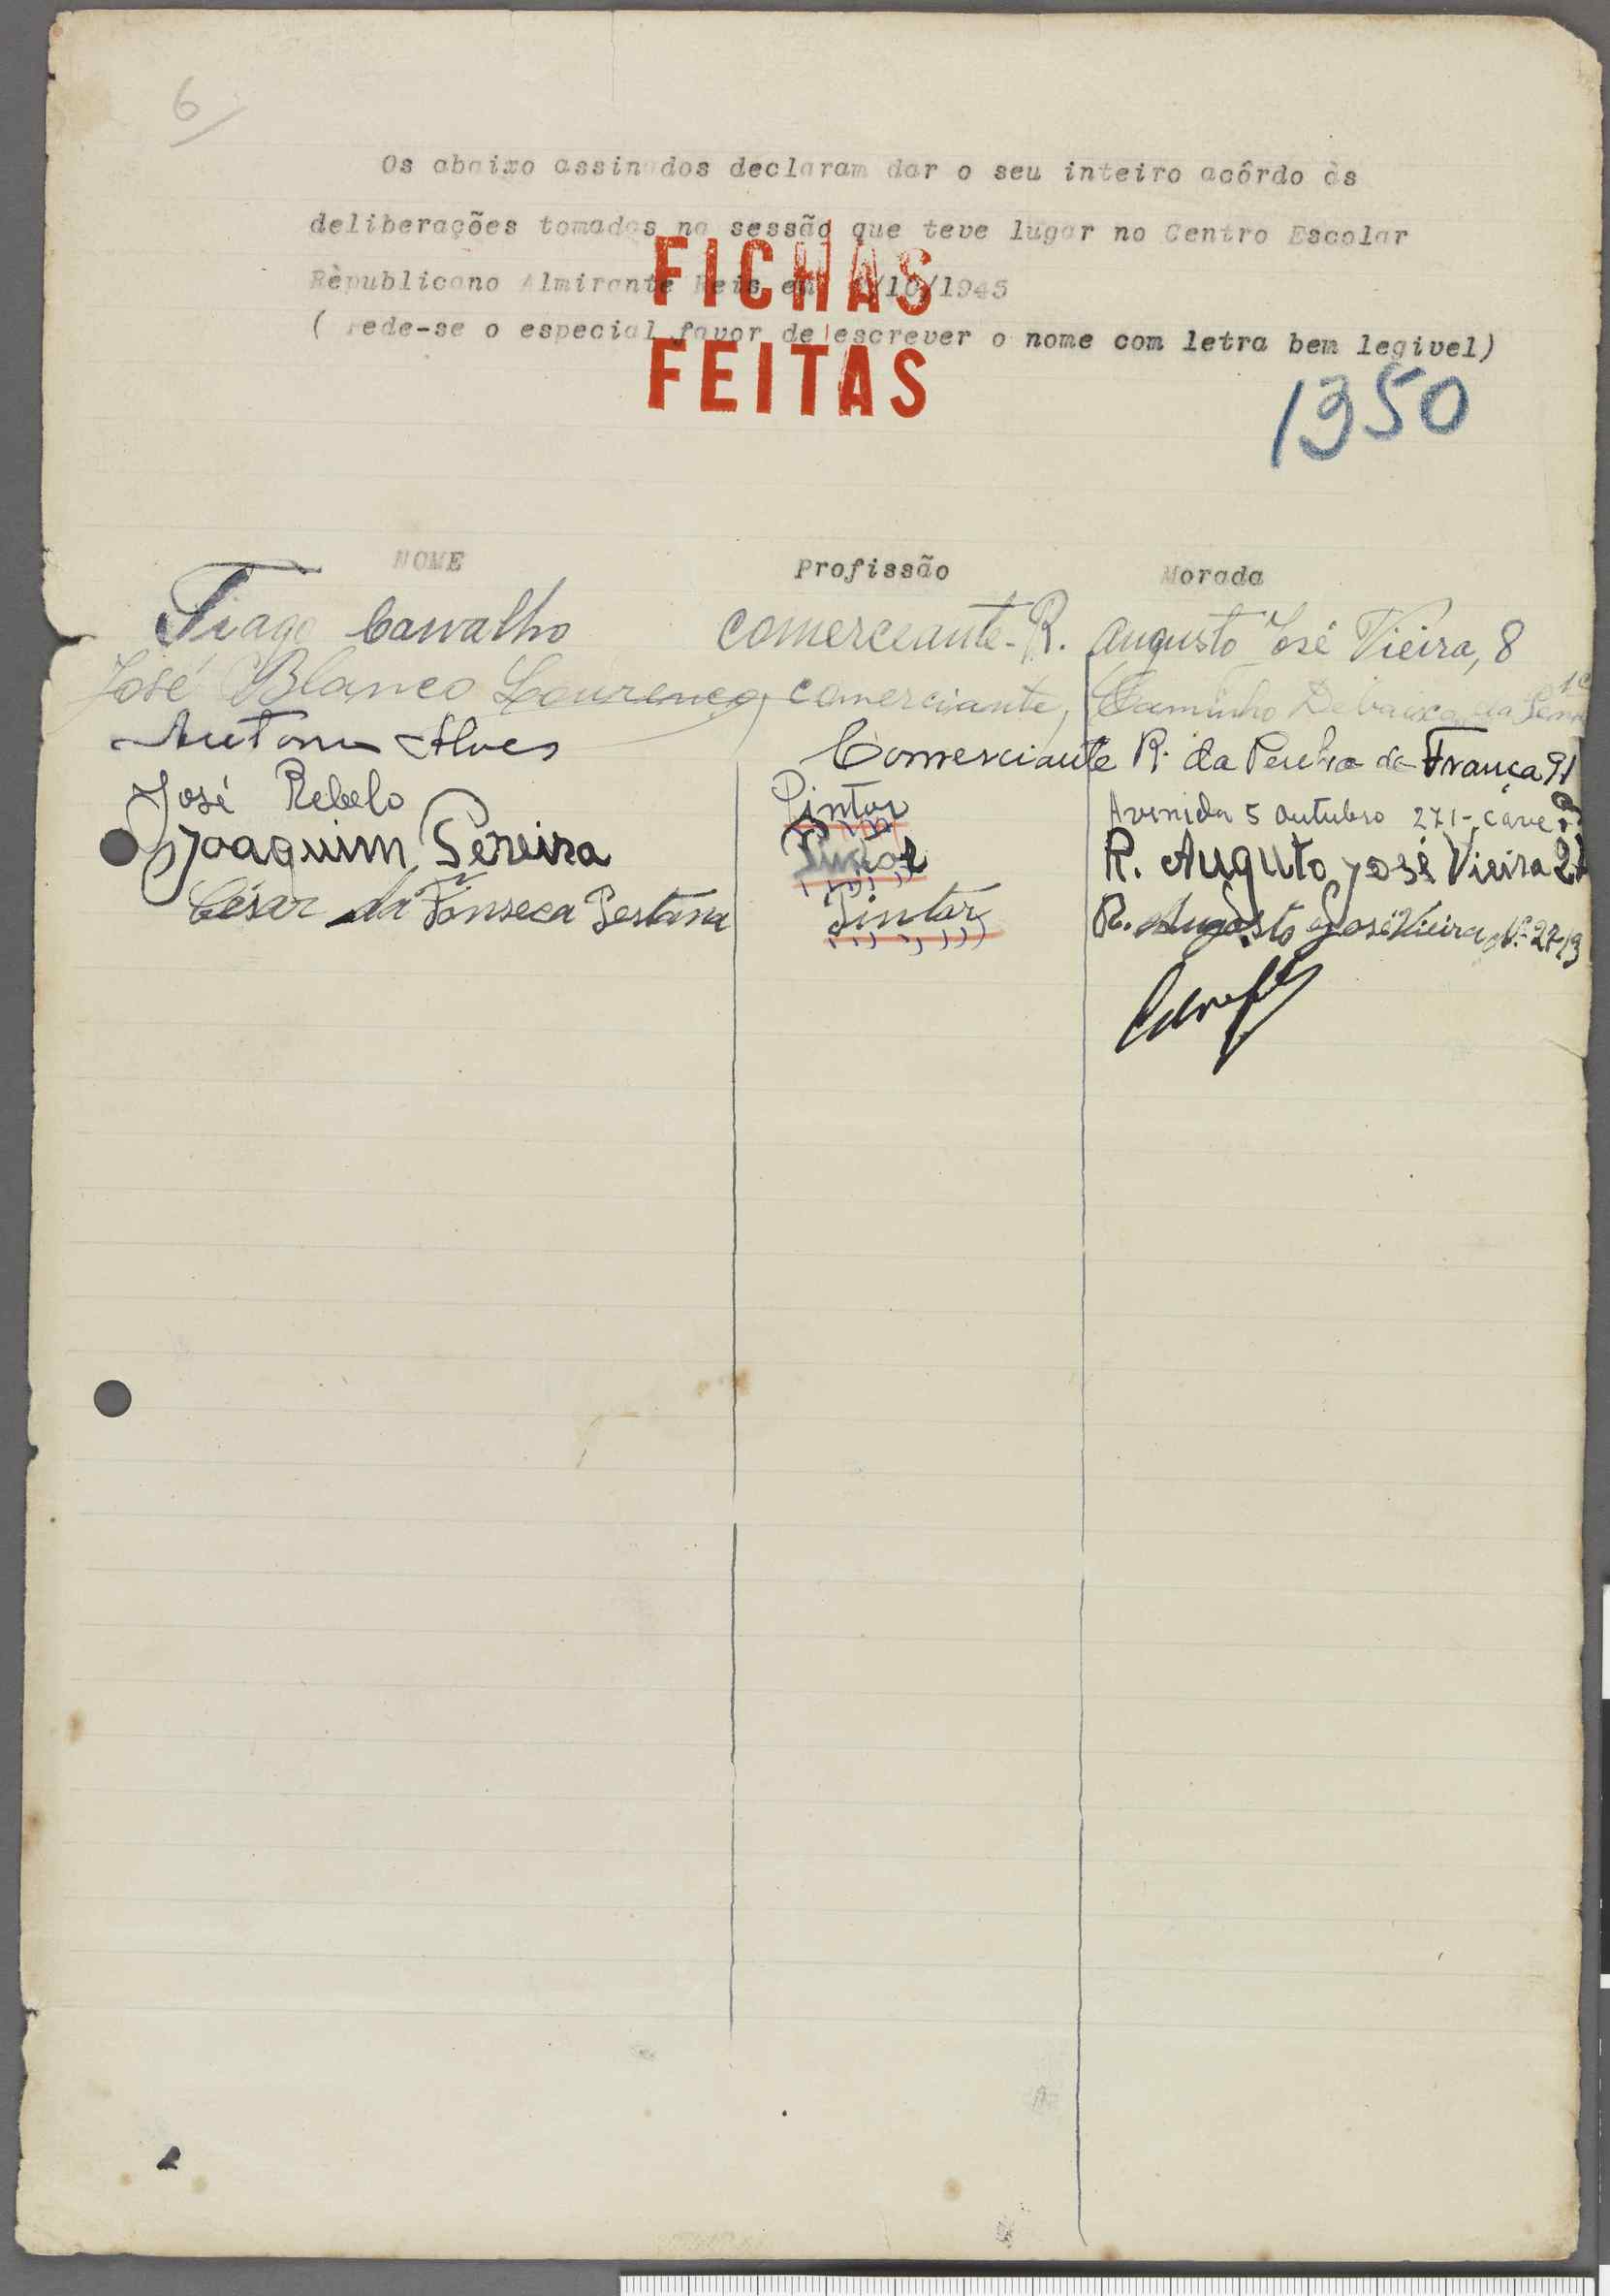 6
Os abaixo assinados declaram dar o seu inteiro acôrdo às
deliberações tomadas na sessão que teve lugar no Centro Escolar
Rèpublicano Almirante Reis em /10/1945
( Pede-se o especial favor de escrever o nome com letra bem legivel)
FICHAS
FEITAS
1350
NOME Profissão Morada
Tiago Carvalho comerciante - R. Augusto José Vieira, 8
José Blanco Lourenço, comerciante, Caminho Debaixo da Penha
Antonio Alves Comerciante R. da Penha de França 91
José Rebelo Pintor Avenida 5 Outubro 271-, cave
Joaquim Pereira Pintor R. Auguto José Vieira 27
César da Fonseca Pestana Pintor R. Augosto José Vieira Nº 27